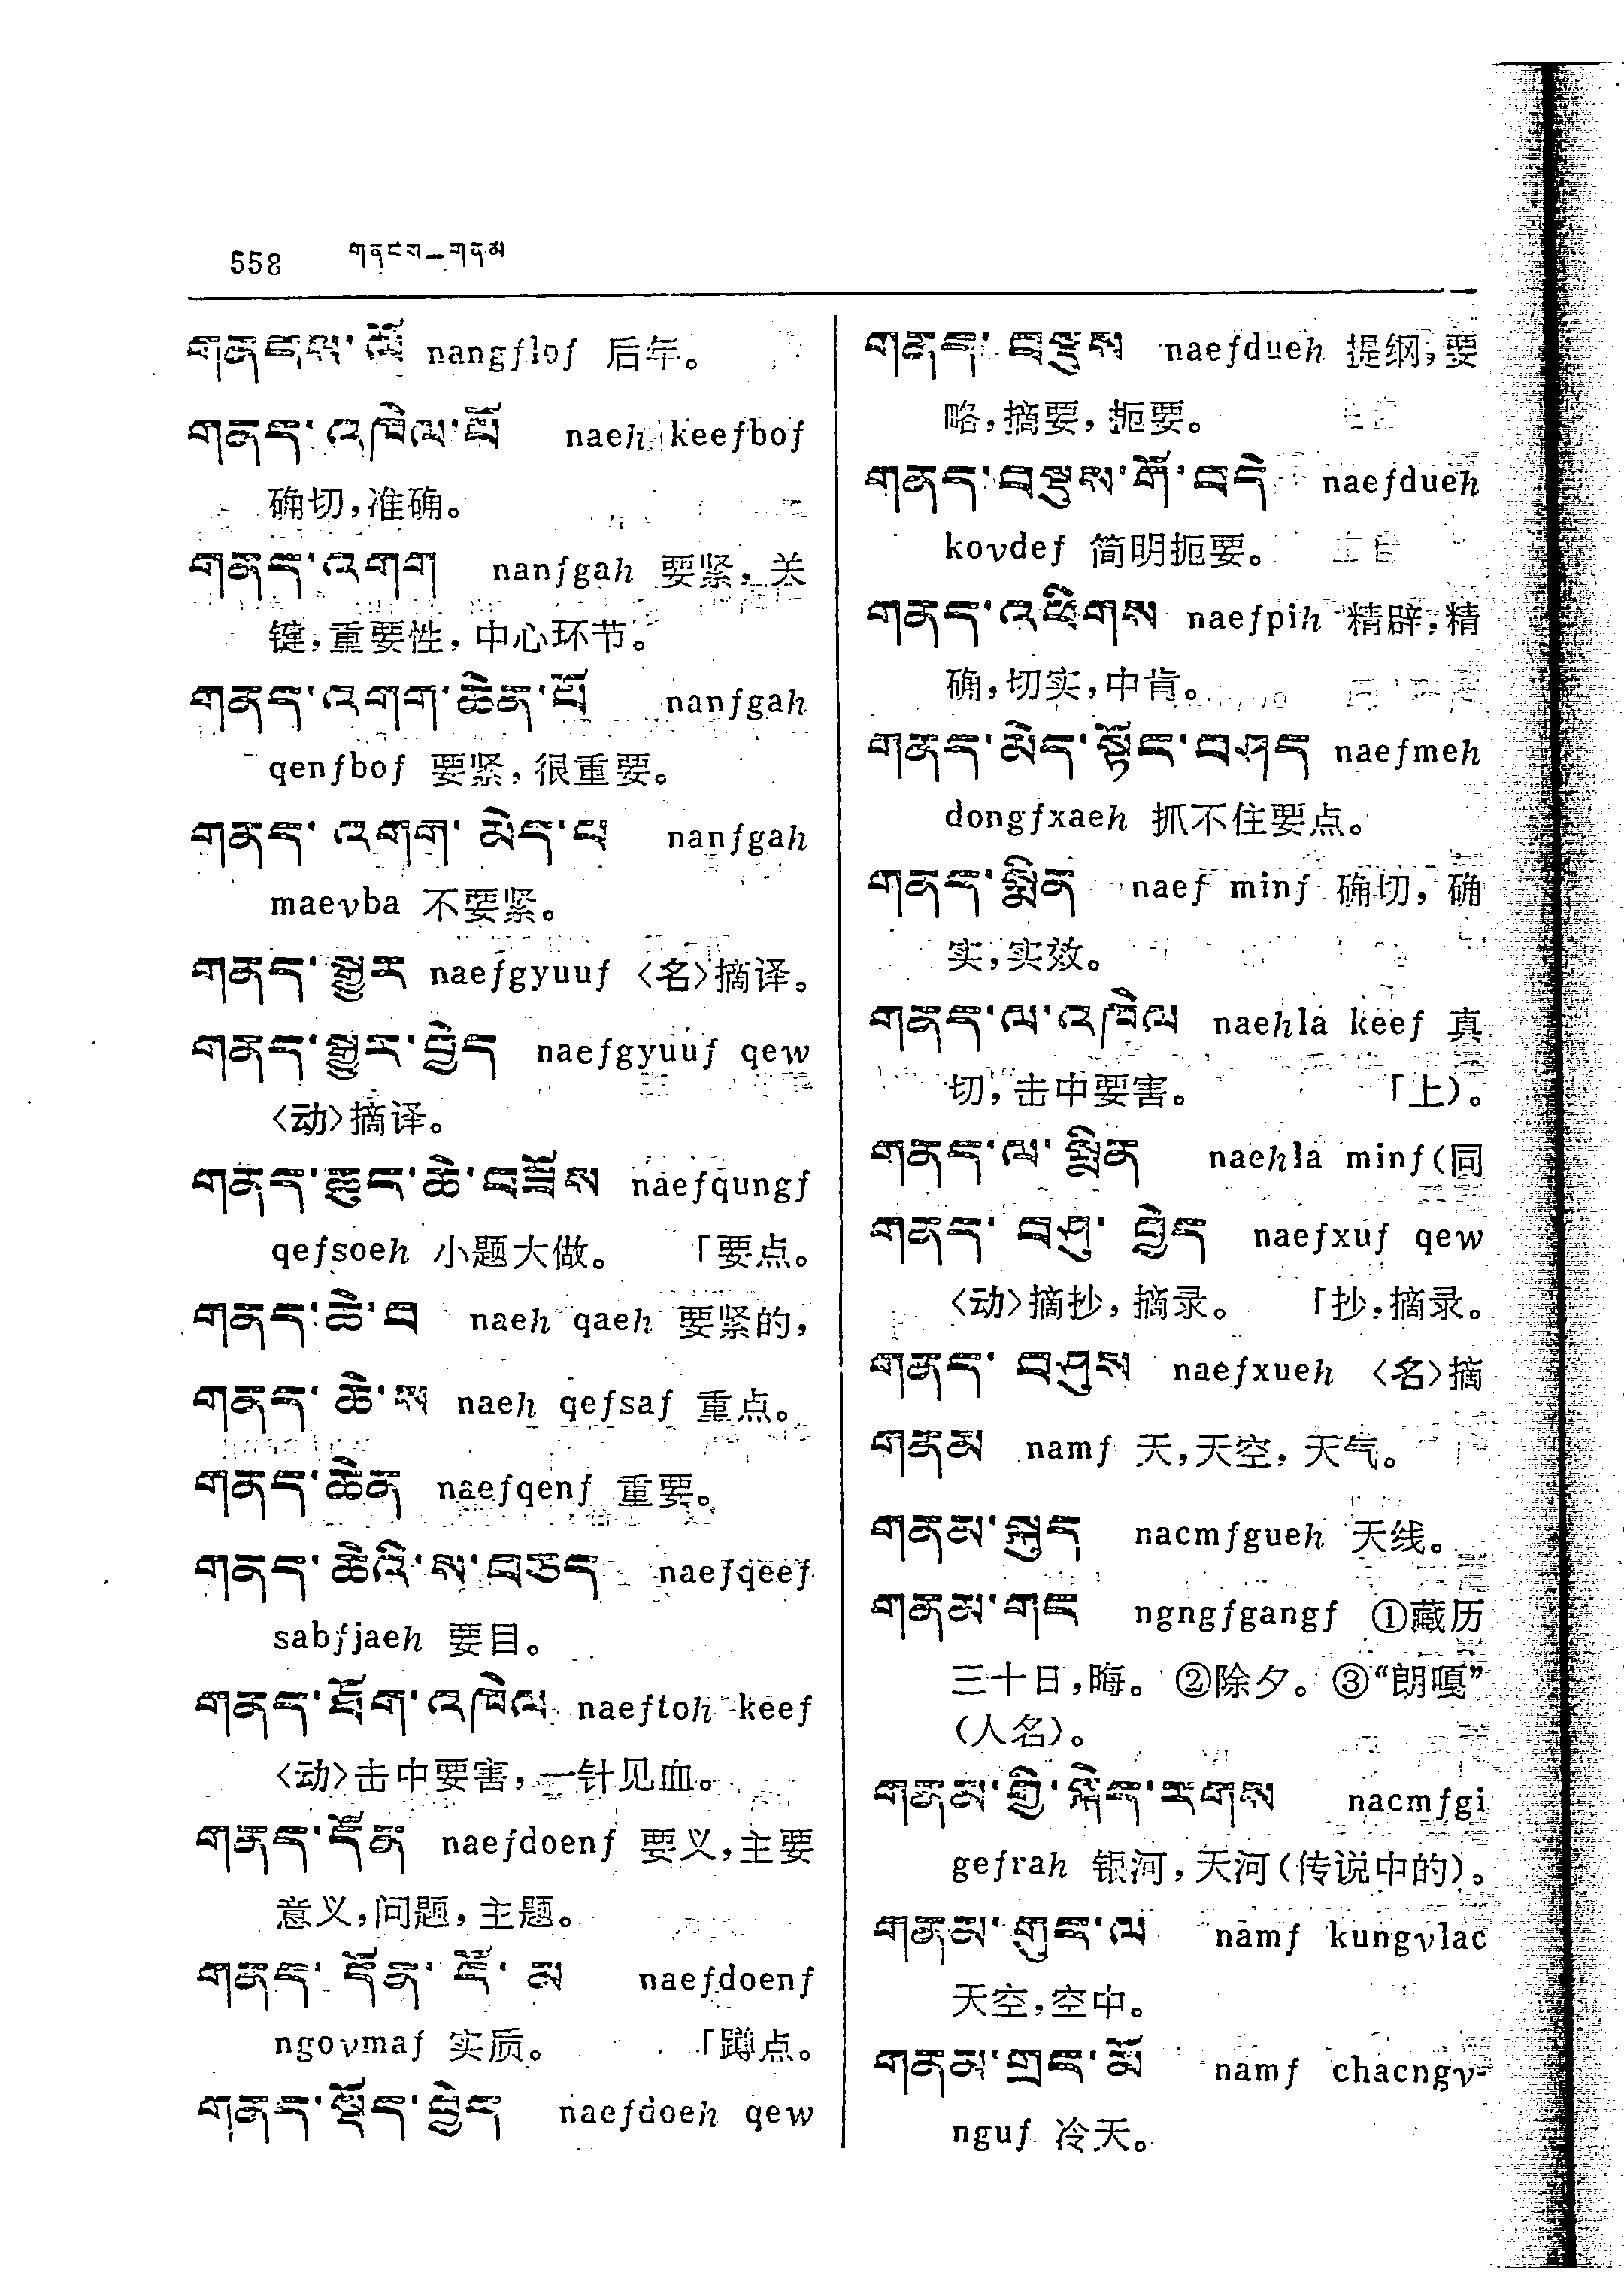 558 གནངས–གནམ
གནངས་ལོ nangƒloƒ 后年。
གནད་འཁེལ་པོ naeh keeƒboƒ
确切,准确。
གནད་འགག nanƒgah 要紧,关
键,重要性,中心环节。
གནད་འགག་ཆེན་པོ nanƒgah
qenƒboƒ 要紧,很重要。
གནད་འགག་མེད་པ nanƒgah
maevba 不要紧。
གནད་སྒྱུར naeƒgyuuƒ 〈名〉摘译。
གནད་སྒྱུར་བྱེད naeƒgyuuƒ qew
〈动〉摘译。
གནད་ཆུང་ཆེ་བཟོས naeƒqungƒ
qeƒsoeh 小题大做。 「要点。
གནད་ཆེ་བ naeh qaeh 要紧的,
གནད་ཆེ་ས naeh qeƒsaƒ 重点。
གནད་ཆེན naeƒqenƒ 重要。
གནད་ཆེའི་ས་བཅད naeƒqeeƒ
sabƒjaeh 要目。
གནད་ཐོག་འཁེལ naeƒtoh keeƒ
〈动〉击中要害,一针见血。
གནད་དོན naeƒdoenƒ 要义,主要
意义,问题,主题。
གནད་དོན་ངོ་མ naeƒdoenƒ
ngovmaƒ 实质。 「蹲点。
གནད་སྡོད་བྱེད naeƒdoeh qew
གནད་བསྡུས naeƒdueh 提纲,要
略,摘要,扼要。
གནད་བསྡུས་གོ་བདེ naeƒdueh
kovdeƒ 简明扼要。
གནད་འཕིགས naeƒpih 精辟,精
确,切实,中肯。
གནད་མེད་སྟོང་བཤད naeƒmeh
dongƒxaeh 抓不住要点。
གནད་སྨིན naeƒ minƒ 确切,确
实,实效。
གནད་ལ་འཁེལ naehla keeƒ 真
切,击中要害。 「上)。
གནད་ལ་སྨིན naehla minƒ(同
གནད་བཤུ་བྱེད naeƒxuƒ qew
〈动〉摘抄,摘录。 「抄,摘录。
གནད་བཤུས naeƒxueh 〈名〉摘
གནམ namƒ 天,天空,天气。
གནམ་སྐུད nacmƒgueh 天线。
གནམ་གང ngngƒgangƒ ①藏历
三十日,晦。②除夕。③“朗嘎”
(人名)。
གནམ་གྱི་སྐེད་རགས nacmƒgi
geƒrah 银河,天河(传说中的)。
གནམ་གུང་ལ namƒ kungvlac
天空,空中。
གནམ་གྲང་མོ namƒ chacngv-
nguƒ 冷天。